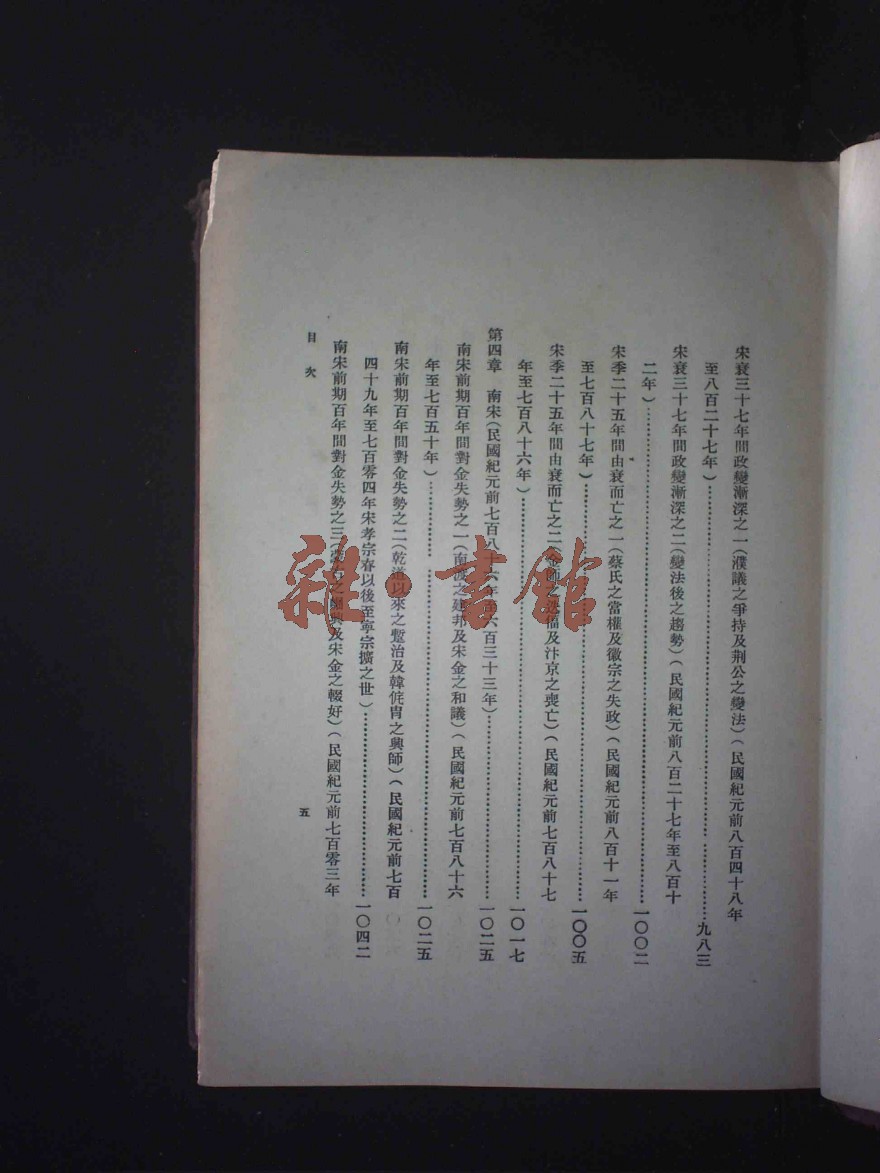 宋衰三十七年間政變漸深之一(濮議之爭持及荆公之變法)(民國紀元前八百四十八年
至八百二十七年)……九八三
宋衰三十七年間政變漸深之二(變法後之趨勢)(民國紀元前八百二十七年至八百十
二年)……一〇〇二
宋季二十五年間由衰而亡之一(蔡氏之當權及徽宗之失政)(民國紀元前八百十一年
至七百八十七年)……一〇〇五
宋季二十五年間由衰而亡之二(金師之逼及汴京之喪亡)(民國紀元前七百八十七
年至七百八十六年)……一〇一七
第四章 南宋(民國紀元前七百八十六年至六百三十三年)……一〇二五
南宋前期百年間對金失勢之一(南渡之建邦及宋金之和議)(民國紀元前七百八十六
年至七百五十年)……一〇二五
南宋前期百年間對金失勢之二(乾道以來之蹔治及韓侂胄之興師)(民國紀元前七百
四十九年至七百零四年宋孝宗眘以後至寧宗擴之世)……一〇四二
南宋前期百年間對金失勢之三(興及宋金之輟好)(民國紀元前七百零三年
目次
五
雜·書館